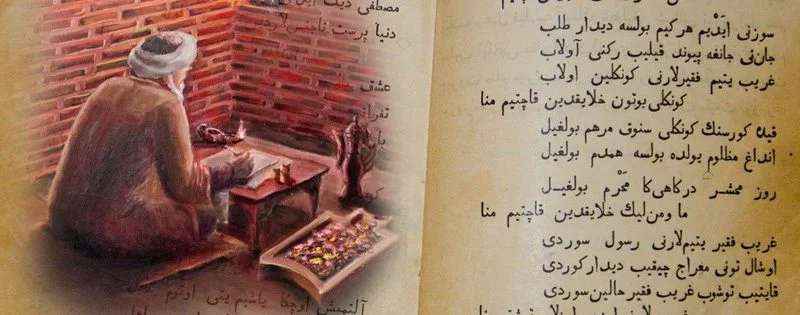 مصطفی دیك
دنیا پرست ناجنس لاردین
عشق
سوزنی ایدیم هرکیم بولسه دیدار طلب
جان نی جانغه پیوند قیلیب رکنی آولاب
غریب یتیم فقیرلارنی کونکلین اولاب
کونکلی بوتون خلایقدین قاچتیم منا
قیده کورسنك کونکلی سنوق مرهم بولغیل
انداغ مظلوم یولده بولسه همدم بولغیل
روز محشر درکاهی کا محرم بولغیل
ما ومن لیك خلایقدین قاچتیم منا
غریب فقیر یتیم لارنی رسول سوردی
اوشال تونی معراج چیقیب دیدار کوردی
قایتیب توشوب غریب فقیر حالین سوردی
آلتمیش اوچکا یاشیم یتی اوتوم